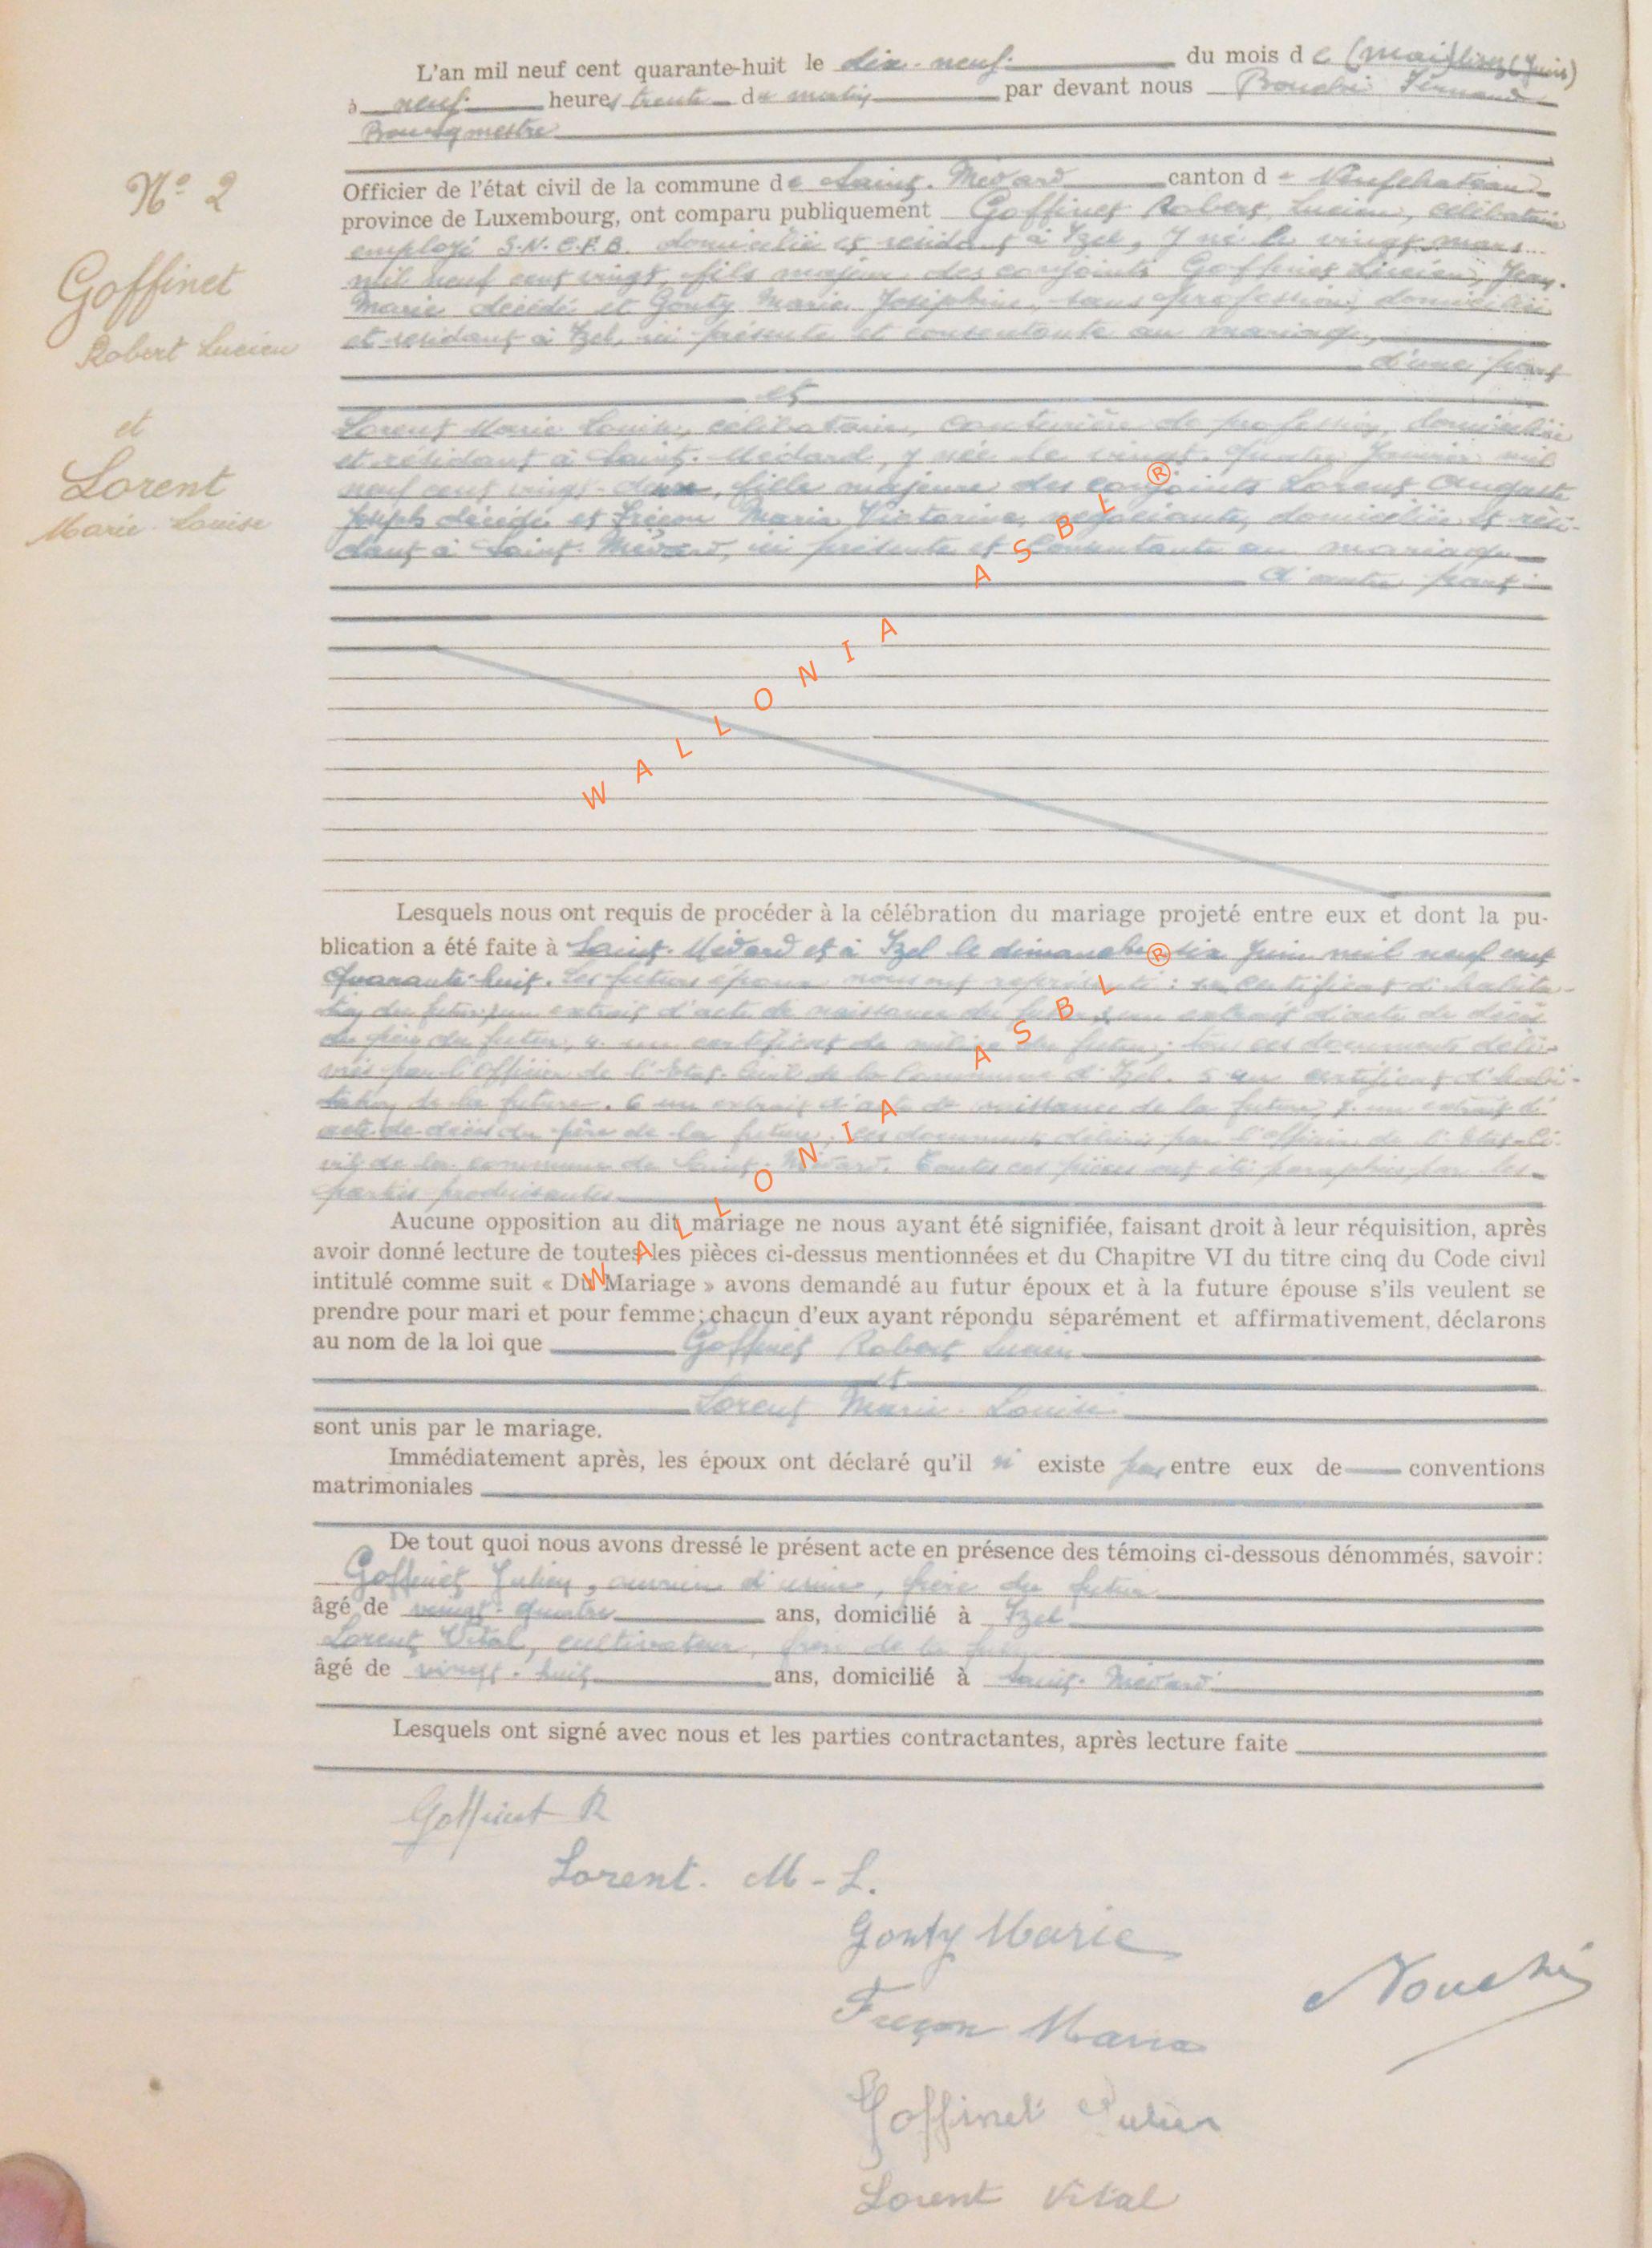 L'an mil neuf cent quarante-huit le dix-neuf du mois de (mai) lisez (Juin)
à neuf heures trente du matin par devant nous Fernand
Bourgmestre
Officier de l'état civil de la commune de Saint-Médard canton de Neufchateau
province de Luxembourg, ont comparu publiquement Goffinet Robert, Lucien, célibataire
employé S.N.C.F.B. domicilié et résidant à Izel, y né le vingt mars
mil neuf cent vingt, fils majeur des conjoints Goffinet Lucien, Jean-
Marie décédé et Gonty Marie Joséphine, sans profession, domiciliée
et résidant à Izel, ici présente et consentante au mariage,
d'une part
et
Lorent Marie Louise, célibataire, couturière de profession, domiciliée
et résidant à Saint-Médard, y née le vingt-quatre Janvier mil
neuf cent vingt-deux, fille majeure des conjoints Lorent Auguste
Joseph décédé et Maria Victorine, négociante, domiciliée et rési-
dant à Saint-Médard, ici présente et consentante au mariage
d'autre part
WALLONIA ASBL ®
Lesquels nous ont requis de procéder à la célébration du mariage projeté entre eux et dont la pu-
blication a été faite à Saint-Médard et à Izel le dimanche six Juin mil neuf cent
quarante-huit. Les futurs époux nous ont représenté : un certificat d'habita-
tion du futur, un extrait d'acte de naissance du futur, un extrait d'acte de décès
du père du futur, 4. un certificat de milice du futur; tous ces documents déli-
vrés par l'Officier de l'Etat-Civil de la Commune d'Izel. 5 un certificat d'habi-
tation de la future. 6 un extrait d'acte de naissance de la future, 7. un extrait d'
acte de décès du père de la future; ces documents délivrés par l'officier de l'Etat-Ci-
vil de la commune de Saint-Médard. Toutes ces pièces ont été paraphées par les
parties produisantes.
WALLONIA ASBL ®
Aucune opposition au dit mariage ne nous ayant été signifiée, faisant droit à leur réquisition, après
avoir donné lecture de toutes les pièces ci-dessus mentionnées et du Chapitre VI du titre cinq du Code civil
intitulé comme suit « Du Mariage » avons demandé au futur époux et à la future épouse s'ils veulent se
prendre pour mari et pour femme; chacun d'eux ayant répondu séparément et affirmativement, déclarons
au nom de la loi que Goffinet Robert Lucien
et
Lorent Marie-Louise
sont unis par le mariage.
Immédiatement après, les époux ont déclaré qu'il n' existe pas entre eux de conventions
matrimoniales
De tout quoi nous avons dressé le présent acte en présence des témoins ci-dessous dénommés, savoir:
Goffinet Julien, ouvrier d'usine, frère du futur
âgé de vingt-quatre ans, domicilié à Izel
Lorent Vital, cultivateur, frère de la future
âgé de vingt-huit ans, domicilié à Saint-Médard
Lesquels ont signé avec nous et les parties contractantes, après lecture faite
Goffinet R
Lorent. M-L.
Gonty Marie
Maria
Goffinet Julien
Lorent Vital
N° 2
Goffinet
Robert Lucien
et
Lorent
Marie-Louise